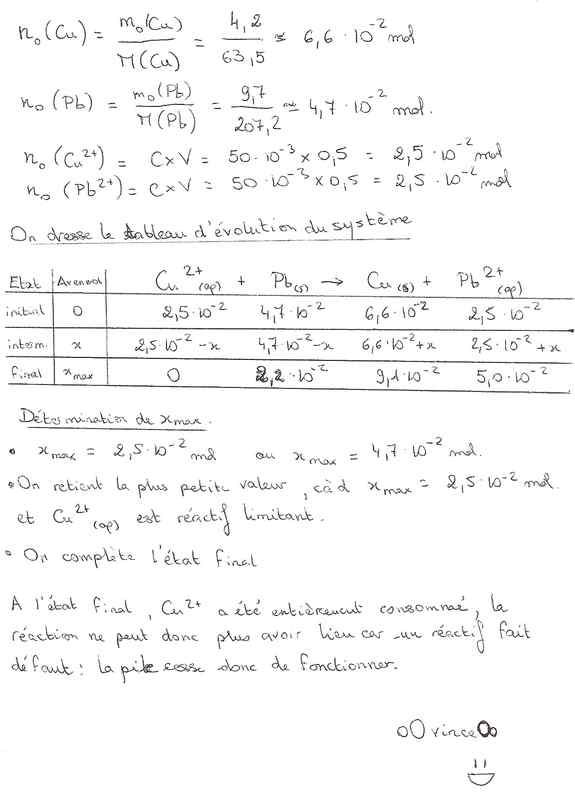 n₀(Cu) = m₀(Cu)/M(Cu) = 4,2/63,5 ≈ 6,6 · 10⁻² mol
n₀(Pb) = m₀(Pb)/M(Pb) = 9,7/207,2 ≈ 4,7 · 10⁻² mol.
n₀(Cu²⁺) = C×V = 50·10⁻³ × 0,5 = 2,5·10⁻² mol
n₀(Pb²⁺) = C×V = 50·10⁻³ × 0,5 = 2,5·10⁻² mol
On dresse le tableau d'évolution du système
Etat Avancmt Cu²⁺(aq) + Pb(s) → Cu(s) + Pb²⁺(aq)
initial 0 2,5·10⁻² 4,7·10⁻² 6,6·10⁻² 2,5·10⁻²
interm. x 2,5·10⁻²-x 4,7·10⁻²-x 6,6·10⁻²+x 2,5·10⁻²+x
final xmax 0 2,2·10⁻² 9,1·10⁻² 5,0·10⁻²
Détermination de xmax.
• xmax = 2,5·10⁻² mol ou xmax = 4,7·10⁻² mol.
• On retient la plus petite valeur, càd xmax = 2,5·10⁻² mol.
et Cu²⁺(aq) est réactif limitant.
• On complète l'état final
A l'état final, Cu²⁺ a été entièrement consommé, la
réaction ne peut donc plus avoir lieu car un réactif fait
défaut : la pile cesse donc de fonctionner.
oOvinceOo